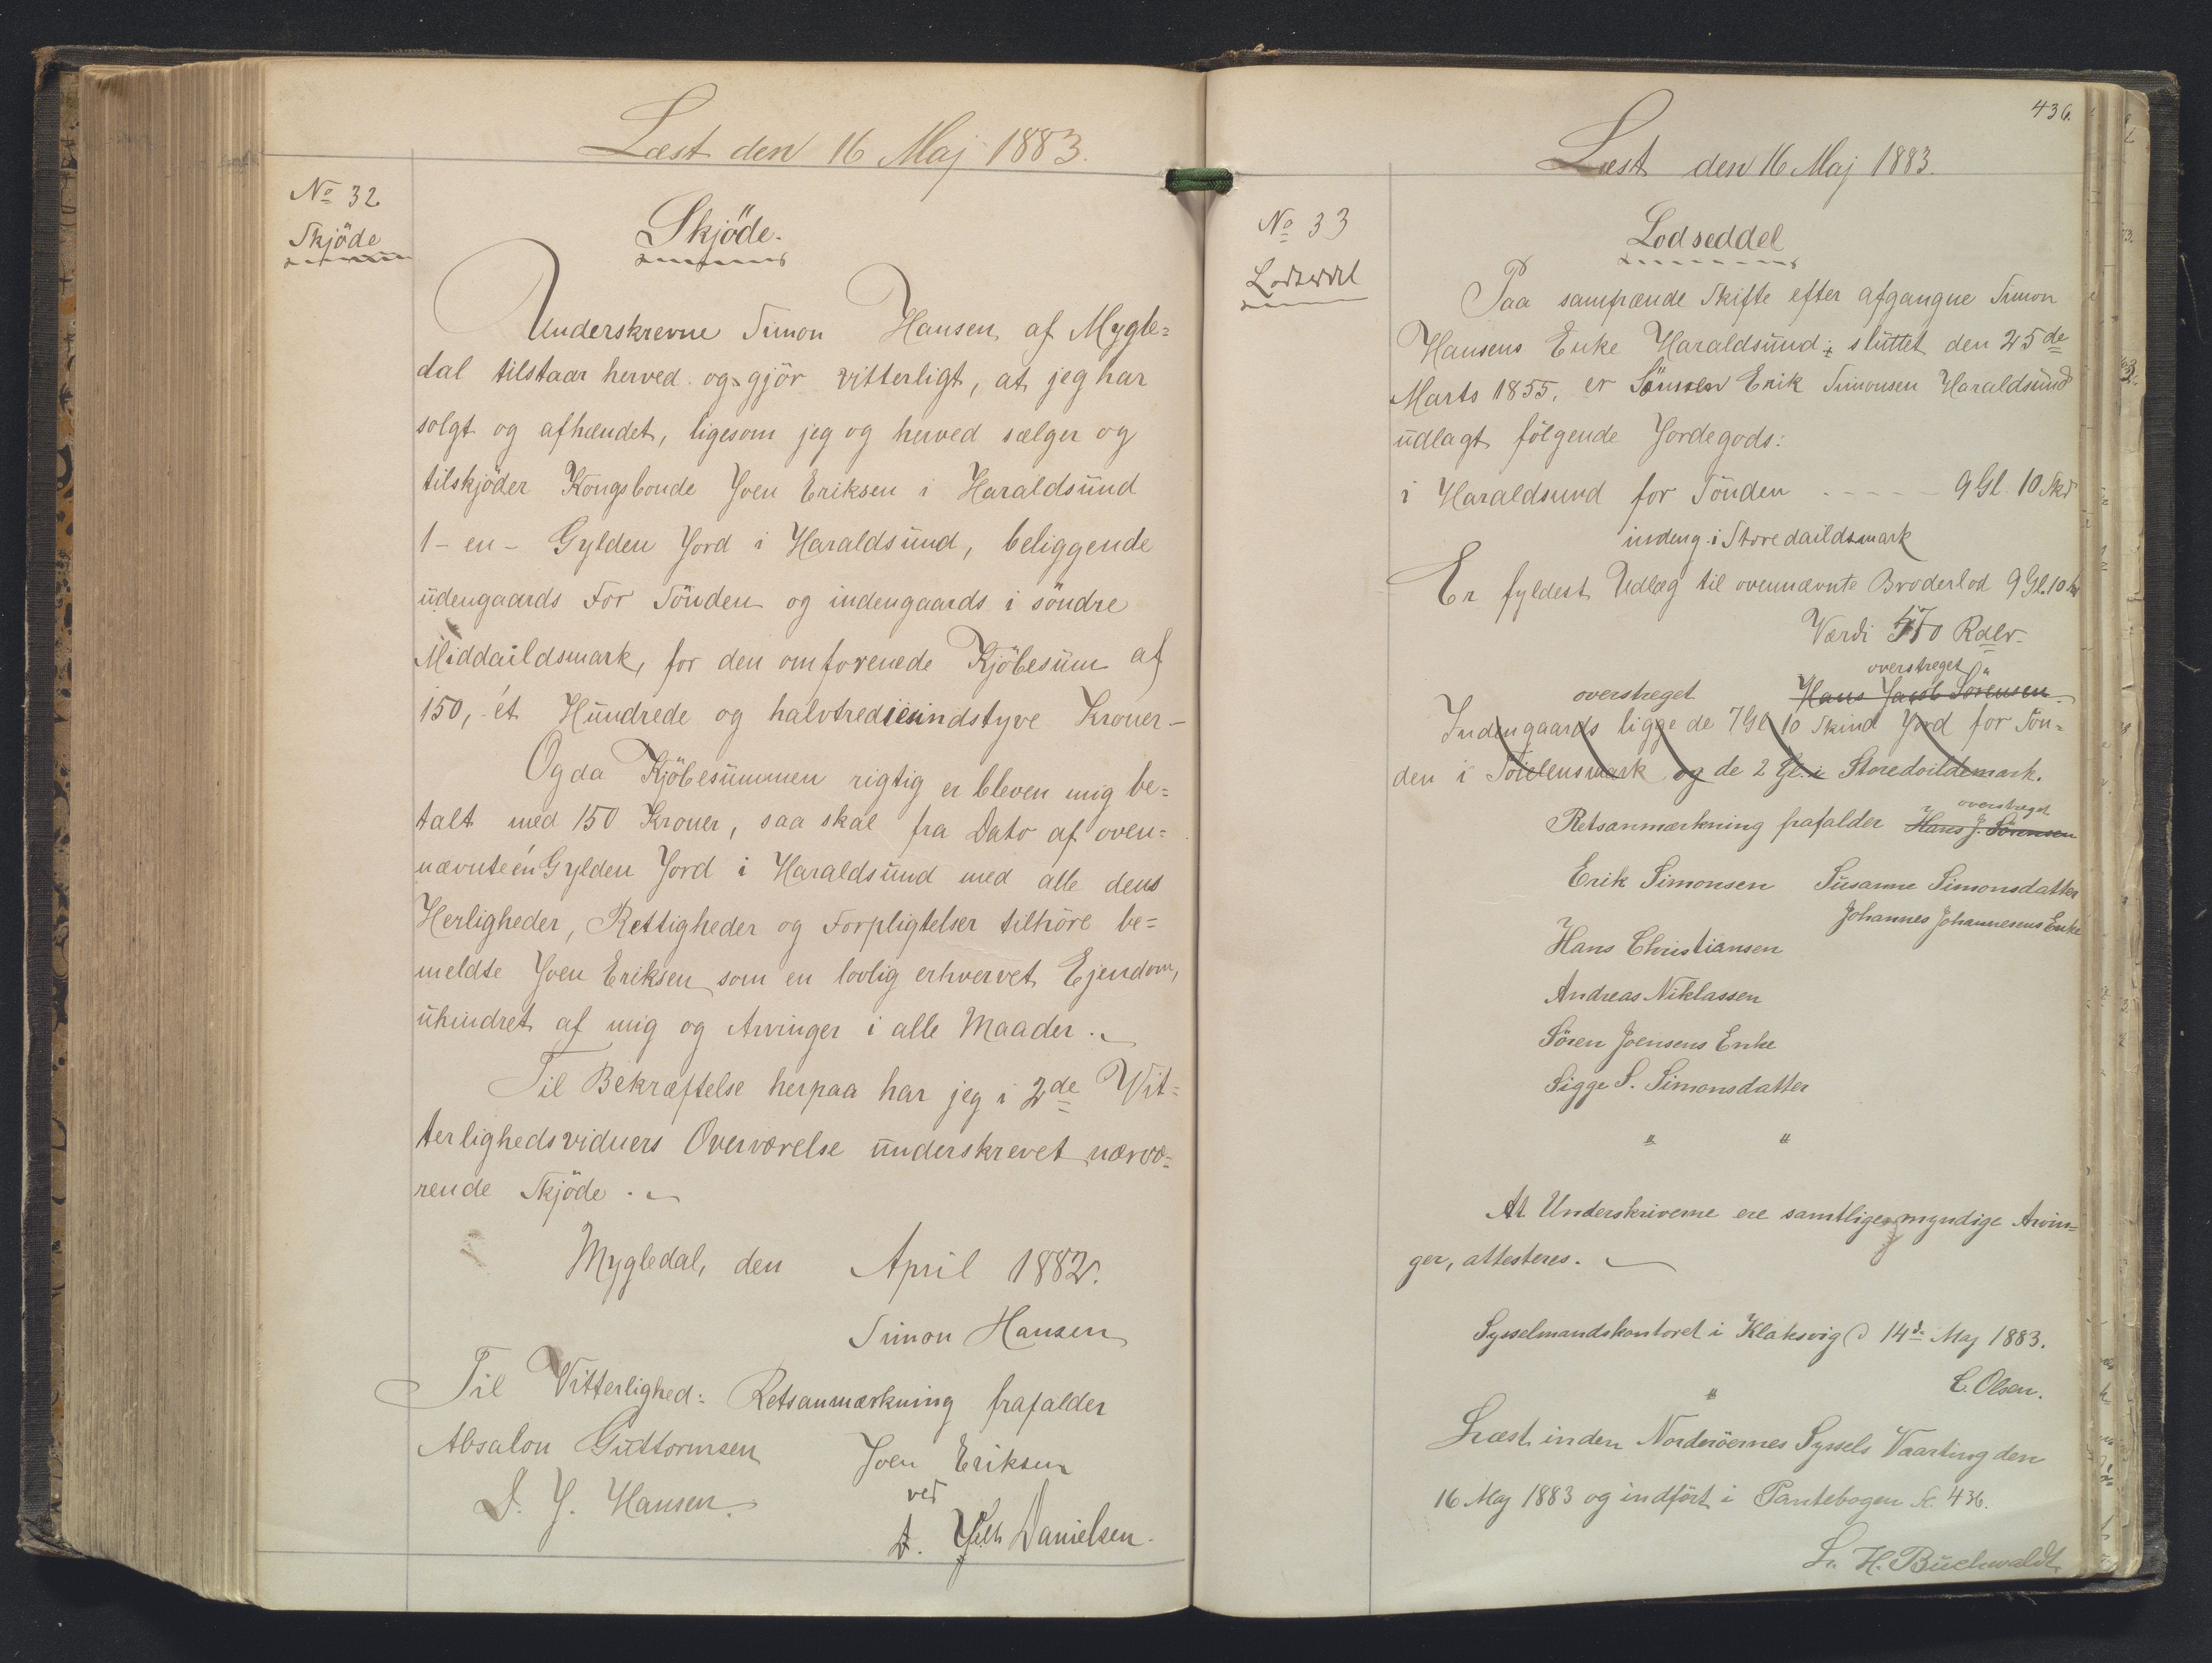 Læst den 16 Maj 1883.
No 32
Skjöde
Skjöde.
Underskrevne Simon Hansen af Mygle=
dal tilstaar herved og gjör vitterligt, at jeg har
solgt og afhændet, ligesom jeg og herved sælger og
tilskjöder Kongsbonde Joen Eriksen i Haraldsund
1 - en - Gylden Jord i Haraldsund, beliggende
udengaards For Tönden og indengaards i söndre
Middaildsmark, for den omforenede Kjöbesum af
150, - ét Hundrede og halvtrediesindstyve Kroner -
Og da Kjöbesummen rigtig er bleven mig be=
talt med 150 Kroner, saa skal fra Dato af oven=
nævnte én Gylden Jord i Haraldsund med alle dens
Herligheder, Rettigheder og Forpligtelser tilhöre be=
meldte Joen Eriksen som en lovlig erhvervet Ejendom,
uhindret af mig og Arvinger i alle Maader.
Til Bekræftelse herpaa har jeg i 2de Vit=
terlighedsvidners Overværelse underskrevet nærvæ=
rende Skjöde.
Mygledal, den April 1882.
Simon Hansen
Til Vitterlighed: Retsanmærkning frafalder
Absalon Guttormsen Joen Eriksen
D. J. Hansen. ved
D. Danielsen.
436.
Læst den 16 Maj 1883.
No 33
Lodseddel
Lodseddel
Paa samfrænde Skifte efter afgangne Simon
Hansens Enke Haraldsund, sluttet den 25de
Marts 1855, er Sönnen Erik Simonsen Haraldsund
udlagt fölgende Jordegods:
i Haraldsund for Tönden - - - - - 9 Gl. 10 Skd
indeng. i Store daildsmark
Er fyldest Udlæg til ovennævnte Broderlod 9 Gl. 10 sk
Værdi 570 Rdlr.
overstreget
overstreget Hans Jacob Sörensen
Indengaards ligge de 7 Gl 10 Skind Jord for Tön=
den i Toielensmark og de 2 Gl. i Storedoildemark.
overstreget
Retsanmærkning frafalder Hans J. Sörensen
Erik Simonsen Susanne Simonsdatter
Johannes Johannesens Enke
Hans Christiansen
Andreas Niklassen
Sören Joensens Enke
Sigge S. Simonsdatter
" "
At Underskriverne ere samtlige myndige Arvin=
ger, attesteres.
Sysselmandskontoret i Klaksvig d 14d. Maj 1883.
" C. Olsen.
Læst inden Norderöernes Syssels Vaarting den
16 Maj 1883 og indfört i Pantebogen Fo. 436.
L. H. Buchwaldt